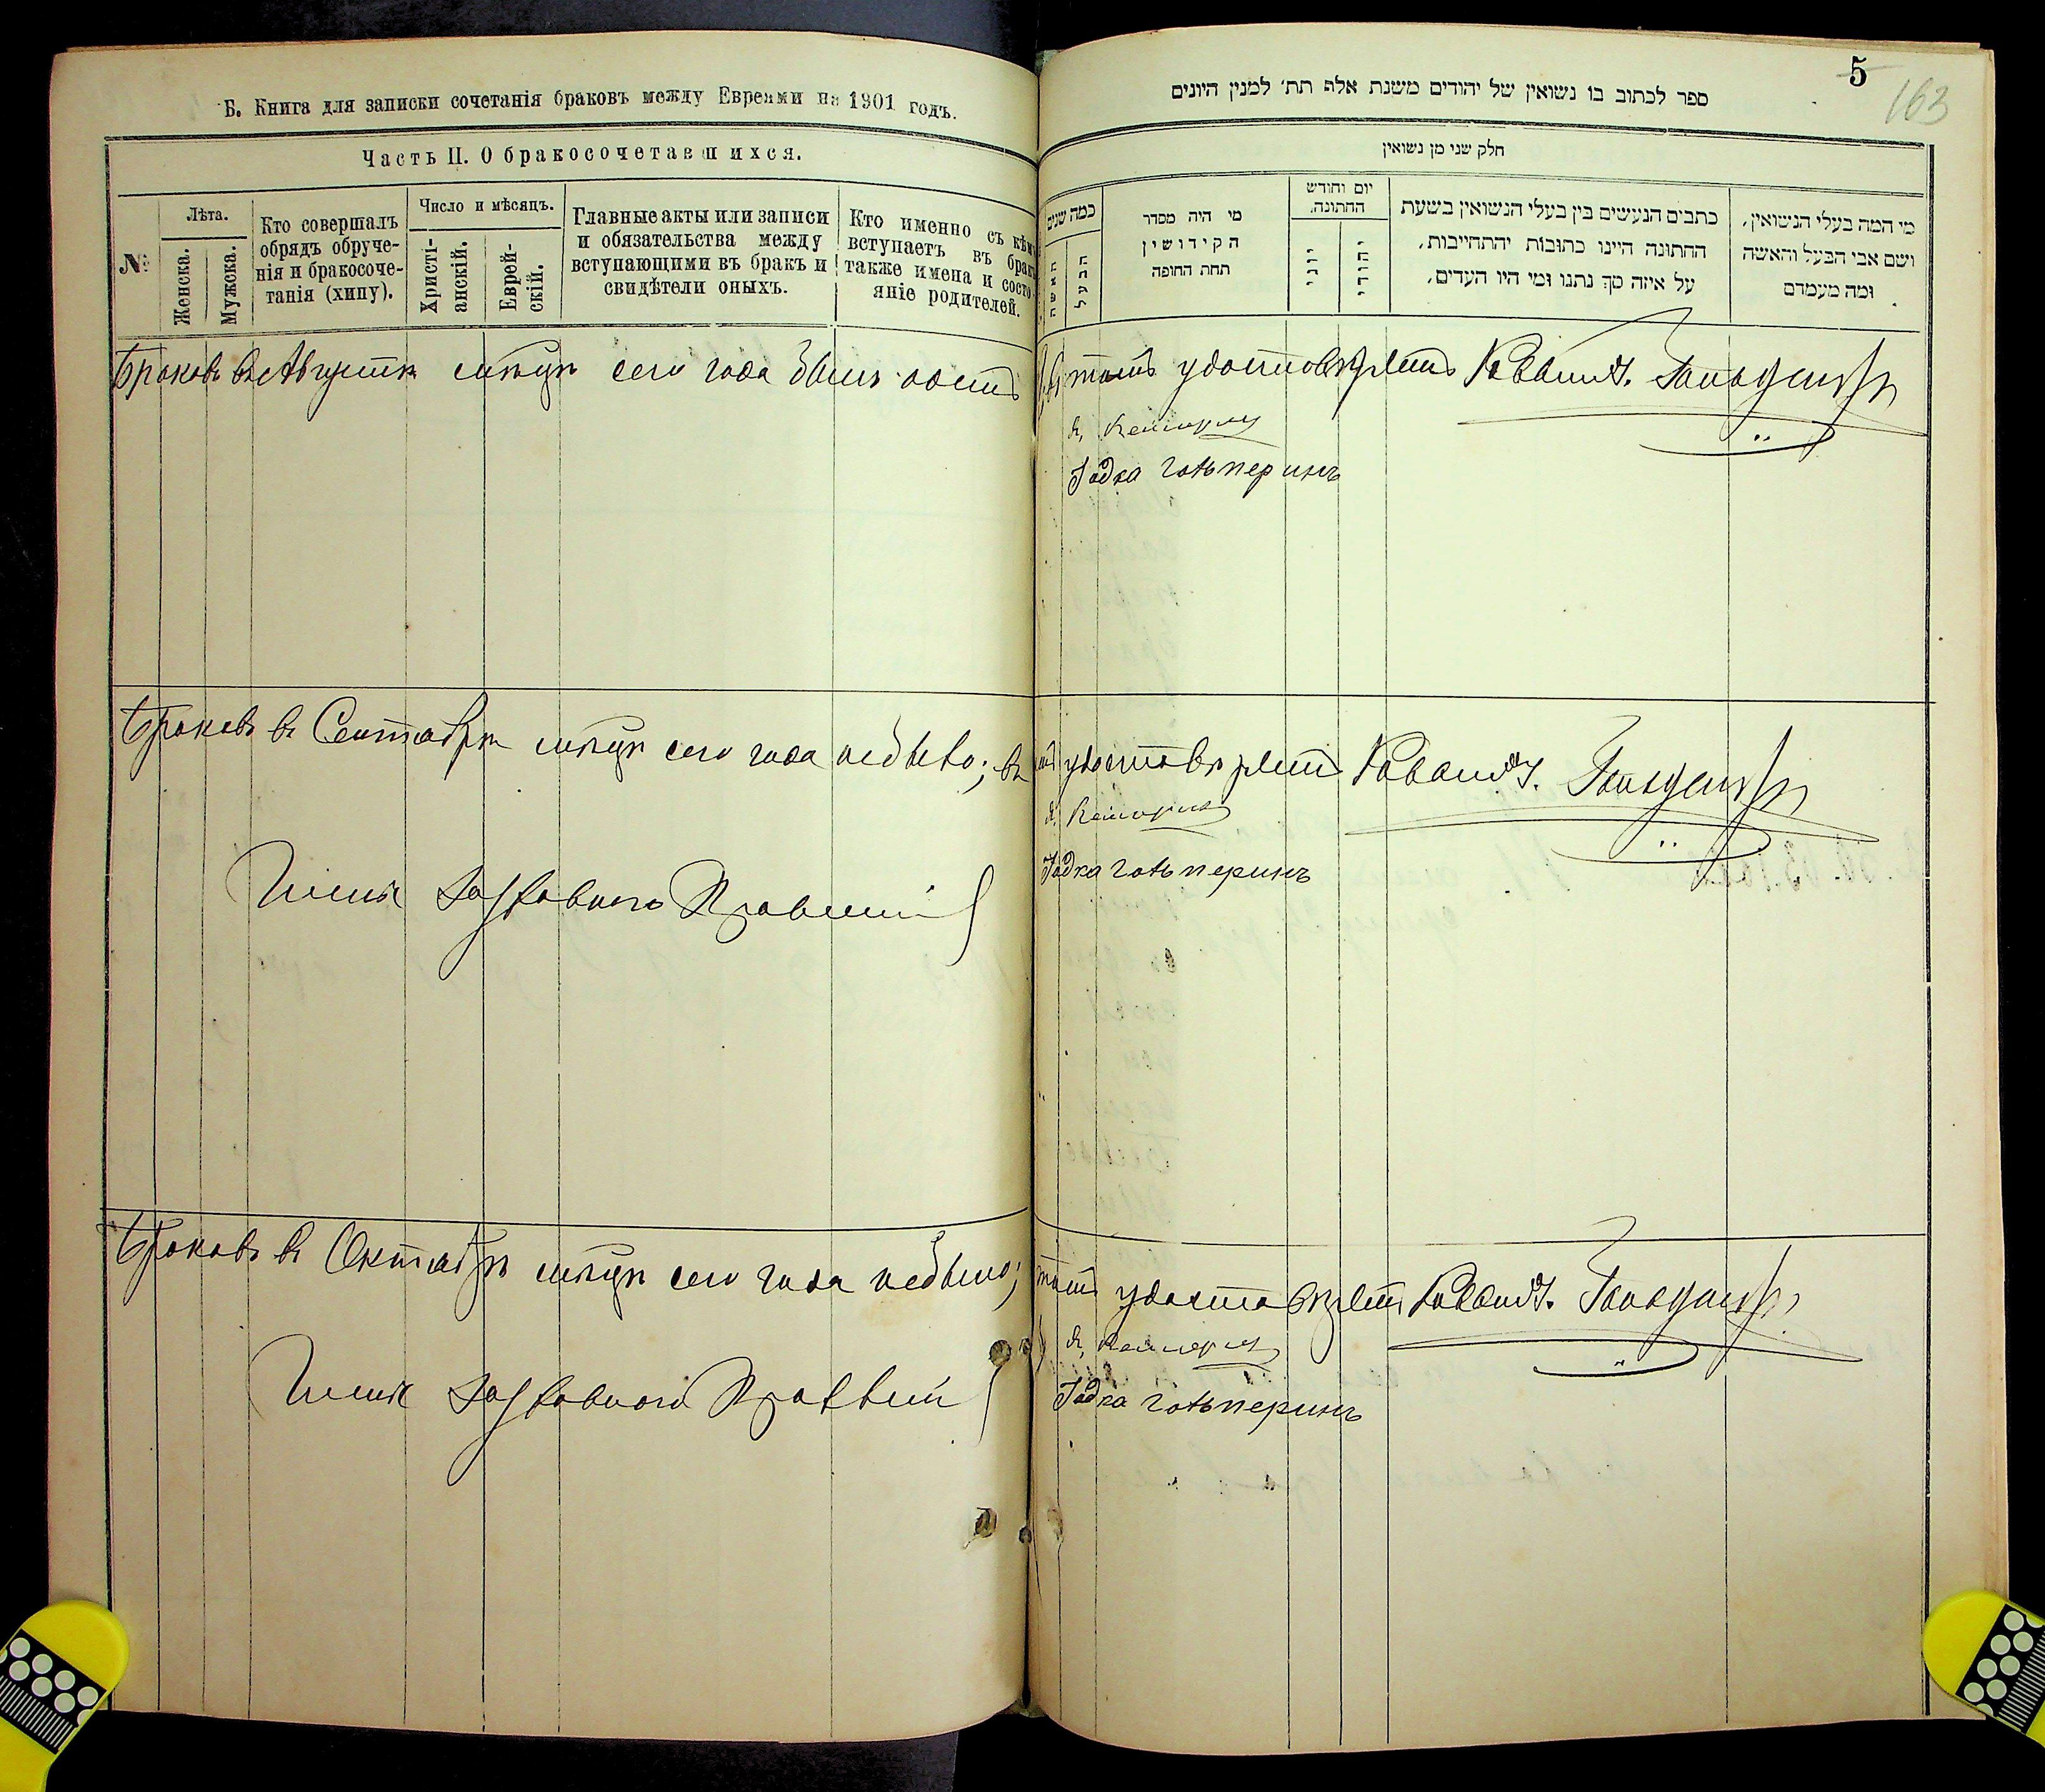 Б. Книга для записки сочетанія браковъ между Евреями на 1901 годъ.
Часть II. О бракосочетавшихся.
№
Лѣта.
Женска.
Мужска.
Кто совершалъ
обрядъ обруче-
нія и бракосоче-
танія (хипу).
Число и мѣсяцъ.
Христі-
анскій.
Еврей-
скій.
Главные акты или записи
и обязательства между
вступающими въ бракъ и
свидѣтели оныхъ.
Кто именно съ кѣмъ
вступаетъ въ бракъ
также имена и состо-
яніе родителей.
Браковъ въ Августѣ мѣсяцѣ сего года
Браковъ въ Сентябрѣ мѣсяцѣ сего года небыло; въ
Члены Духовнаго Правленія
Браковъ въ Октябрѣ мѣсяцѣ сего года небыло;
Члены Духовнаго Правленія
5
163
ספר לכתוב בו נשואין של יהודים משנת אלף תת׳ למנין היונים
חלק שני מן נשואין
כמה שנים
האשה
הבעל
מי היה מסדר
הקידושין
תחת החופה
יום וחודש
החתונה.
יוני
יהודי
כתבים הנעשים בין בעלי הנשואין בשעת
החתונה היינו כתובות יהתחייבות,
על איזה סך נתנו ומי היו העדים,
מי המה בעלי הנשואין,
ושם אבי הבעל והאשה
ומה מעמדם
томъ удостовѣряетъ Раввинъ
Годка Гольперинъ
удостовѣряетъ Раввинъ
Годка Гольперинъ
томъ удостовѣряетъ Раввинъ
Годка Гольперинъ